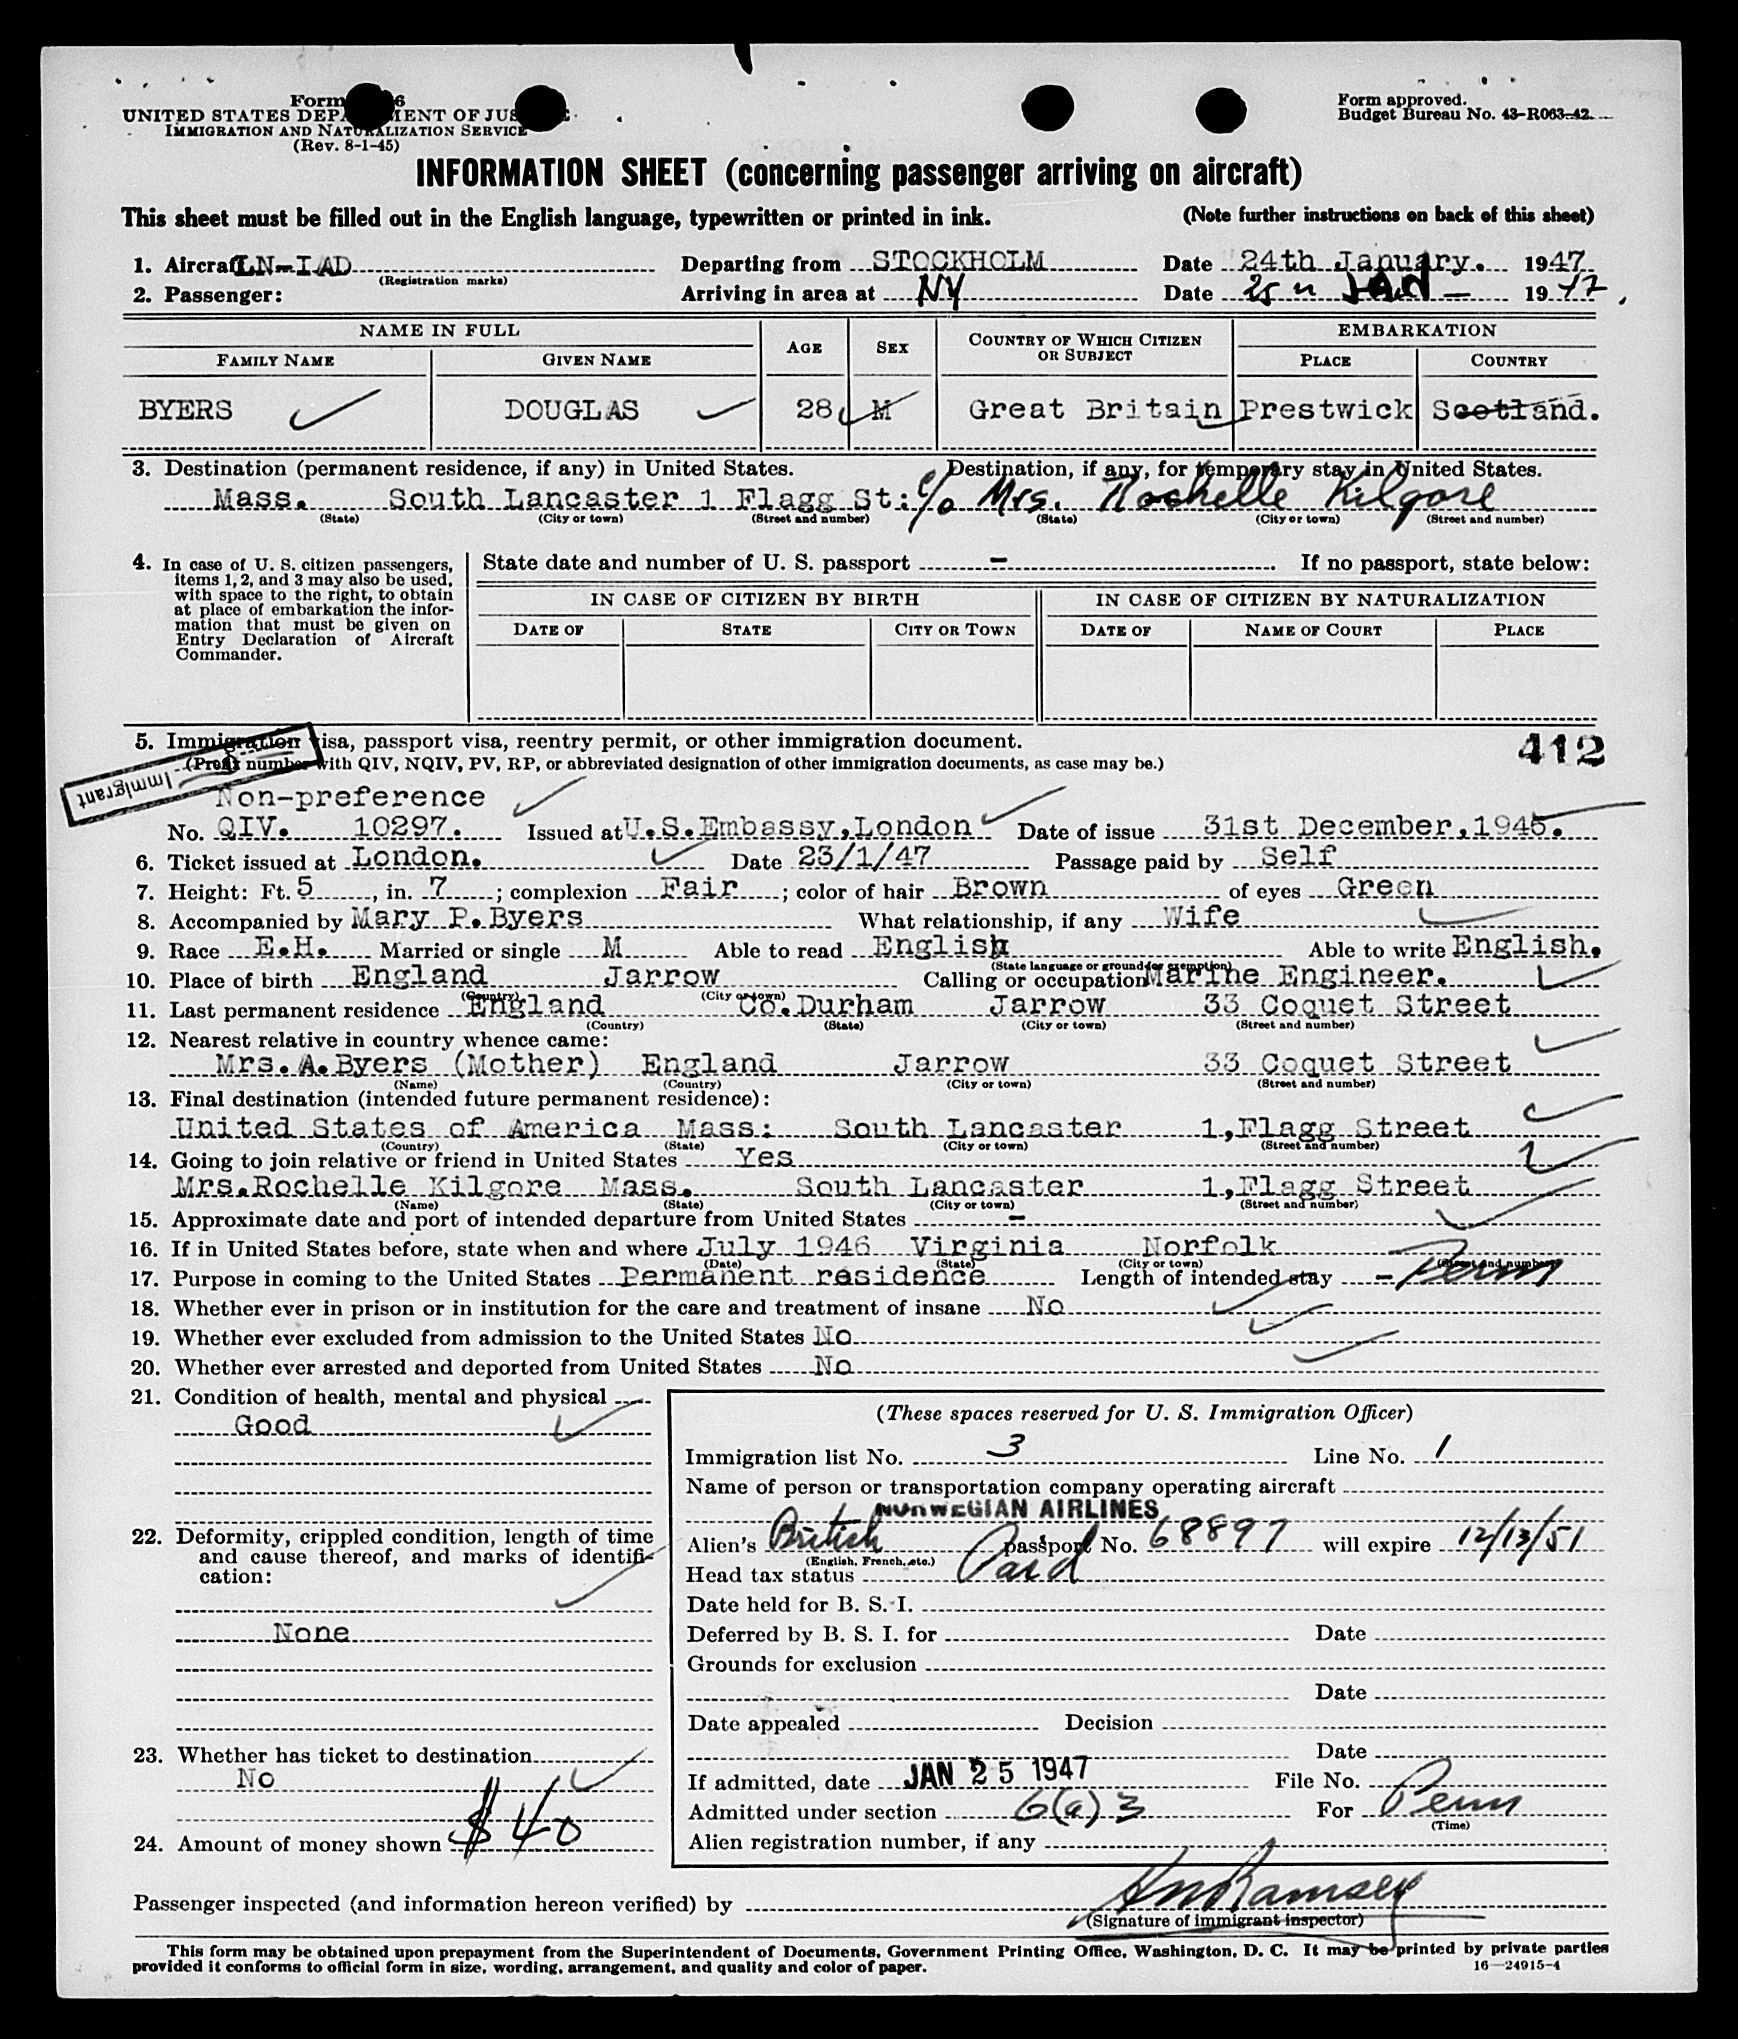 Form 6
UNITED STATES DEPARTMENT OF JUSTICE
IMMIGRATION AND NATURALIZATION SERVICE
(Rev. 8-1-45)
Form approved.
Budget Bureau No. 43-R063-42.
INFORMATION SHEET (concerning passenger arriving on aircraft)
This sheet must be filled out in the English language, typewritten or printed in ink. (Note further instructions on back of this sheet)
1. Aircraft LN-IAD Departing from STOCKHOLM Date 24th January. 1947
(Registration marks)
2. Passenger: Arriving in area at NY Date 25 Jan 1947
NAME IN FULL AGE SEX COUNTRY OF WHICH CITIZEN OR SUBJECT EMBARKATION
FAMILY NAME GIVEN NAME PLACE COUNTRY
BYERS DOUGLAS 28 M Great Britain Prestwick Scotland.
3. Destination (permanent residence, if any) in United States. Destination, if any, for temporary stay in United States.
Mass. South Lancaster 1 Flagg St: c/o Mrs. Rochelle Kilgore
(State) (City or town) (Street and number) (State) (City or town) (Street and number)
4. In case of U. S. citizen passengers, items 1, 2, and 3 may also be used, with space to the right, to obtain at place of embarkation the information that must be given on Entry Declaration of Aircraft Commander.
State date and number of U. S. passport - If no passport, state below:
IN CASE OF CITIZEN BY BIRTH IN CASE OF CITIZEN BY NATURALIZATION
DATE OF STATE CITY OR TOWN DATE OF NAME OF COURT PLACE
5. Immigration visa, passport visa, reentry permit, or other immigration document. 412
(Prefix number with QIV, NQIV, PV, RP, or abbreviated designation of other immigration documents, as case may be.)
Immigrant
Non-preference
No. QIV. 10297. Issued at U.S.Embassy, London Date of issue 31st December, 1946.
6. Ticket issued at London. Date 23/1/47 Passage paid by Self
7. Height: Ft. 5, in. 7; complexion Fair; color of hair Brown of eyes Green
8. Accompanied by Mary P. Byers What relationship, if any Wife
9. Race E.H. Married or single M Able to read English Able to write English.
(State language or ground for exemption)
10. Place of birth England Jarrow Calling or occupation Marine Engineer.
(Country) (City or town)
11. Last permanent residence England Co. Durham Jarrow 33 Coquet Street
(Country) (State) (City or town) (Street and number)
12. Nearest relative in country whence came:
Mrs. A. Byers (Mother) England Jarrow 33 Coquet Street
(Name) (Country) (City or town) (Street and number)
13. Final destination (intended future permanent residence):
United States of America Mass: South Lancaster 1, Flagg Street
(Country) (State) (City or town) (Street and number)
14. Going to join relative or friend in United States Yes
Mrs. Rochelle Kilgore Mass. South Lancaster 1, Flagg Street
(Name) (State) (City or town) (Street and number)
15. Approximate date and port of intended departure from United States -
16. If in United States before, state when and where July 1946 Virginia Norfolk
(Date) (State) (City or town) (Street and number)
17. Purpose in coming to the United States Permanent residence Length of intended stay - Perm
18. Whether ever in prison or in institution for the care and treatment of insane No
19. Whether ever excluded from admission to the United States No
20. Whether ever arrested and deported from United States No
21. Condition of health, mental and physical
Good
22. Deformity, crippled condition, length of time and cause thereof, and marks of identification:
None
23. Whether has ticket to destination
No
24. Amount of money shown $40
(These spaces reserved for U. S. Immigration Officer)
Immigration list No. 3 Line No. 1
Name of person or transportation company operating aircraft
NORWEGIAN AIRLINES
Alien's British passport No. 68897 will expire 12/13/51
(English, French, etc.)
Head tax status Paid
Date held for B. S. I.
Deferred by B. S. I. for Date
Grounds for exclusion
Date
Date appealed Decision
Date
If admitted, date JAN 25 1947 File No.
Admitted under section 6(a)3 For Perm
(Time)
Alien registration number, if any
Passenger inspected (and information hereon verified) by Ramsey
(Signature of immigrant inspector)
This form may be obtained upon prepayment from the Superintendent of Documents, Government Printing Office, Washington, D. C. It may be printed by private parties
provided it conforms to official form in size, wording, arrangement, and quality and color of paper. 16—24915-4